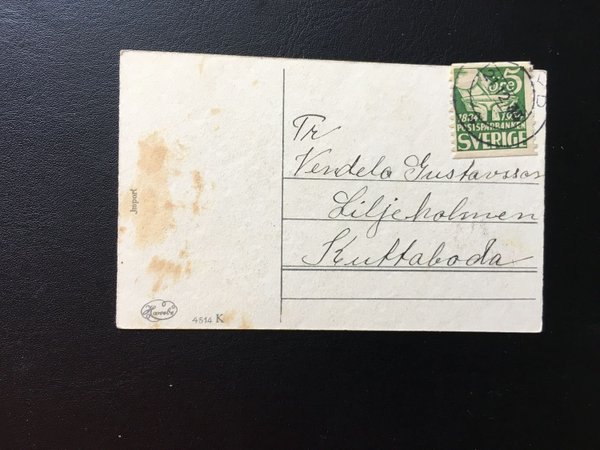 5
ÖRE
1884 19
POSTSPARBANKEN
SVERIGE
Tr
Vendela Gustavsson
Liljeholmen
Kuttaboda
Import
4514 K